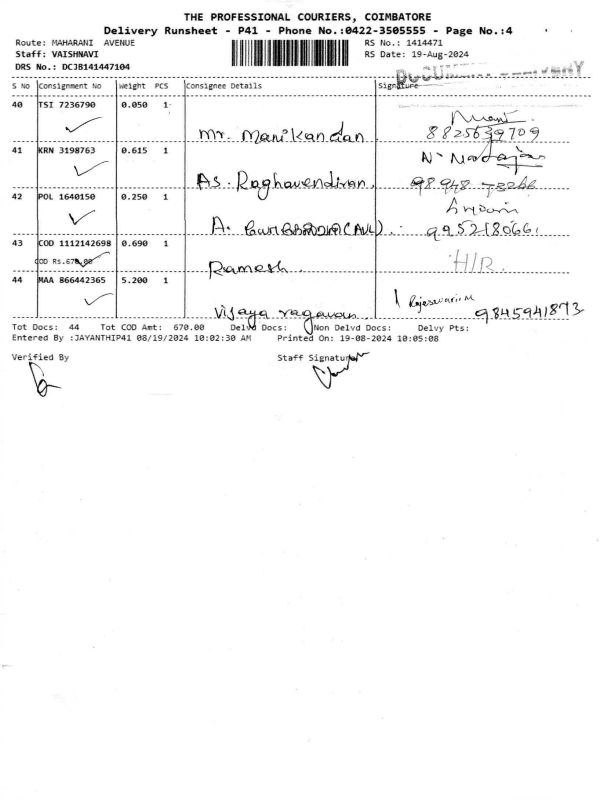 THE PROFESSIONAL COURIERS, COIMBATORE
Delivery Runsheet - P41 - Phone No.:0422-3505555 - Page No.:4
Route: MAHARANI AVENUE RS No.: 1414471
Staff: VAISHNAVI RS Date: 19-Aug-2024
DRS No.: DCJB141447104
DOCUMENT DELIVERY
S No Consignment No Weight PCS Consignee Details Signature
40 TSI 7236790 0.050 1
Mr. Manikandan 8825639709
41 KRN 3198763 0.615 1 N. Natarajan
As. Raghavendiran. 98948 73266
42 POL 1640150 0.250 1
A. (AVL). 9952180661
43 COD 1112142698 0.690 1
COD Rs.670.00 H/R.
Ramesh.
44 MAA 866442365 5.200 1 Rajeswari M
Vijaya ragavan. 9845941873
Tot Docs: 44 Tot COD Amt: 670.00 Delvd Docs: Non Delvd Docs: Delvy Pts:
Entered By :JAYANTHIP41 08/19/2024 10:02:30 AM Printed On: 19-08-2024 10:05:08
Verified By Staff Signature